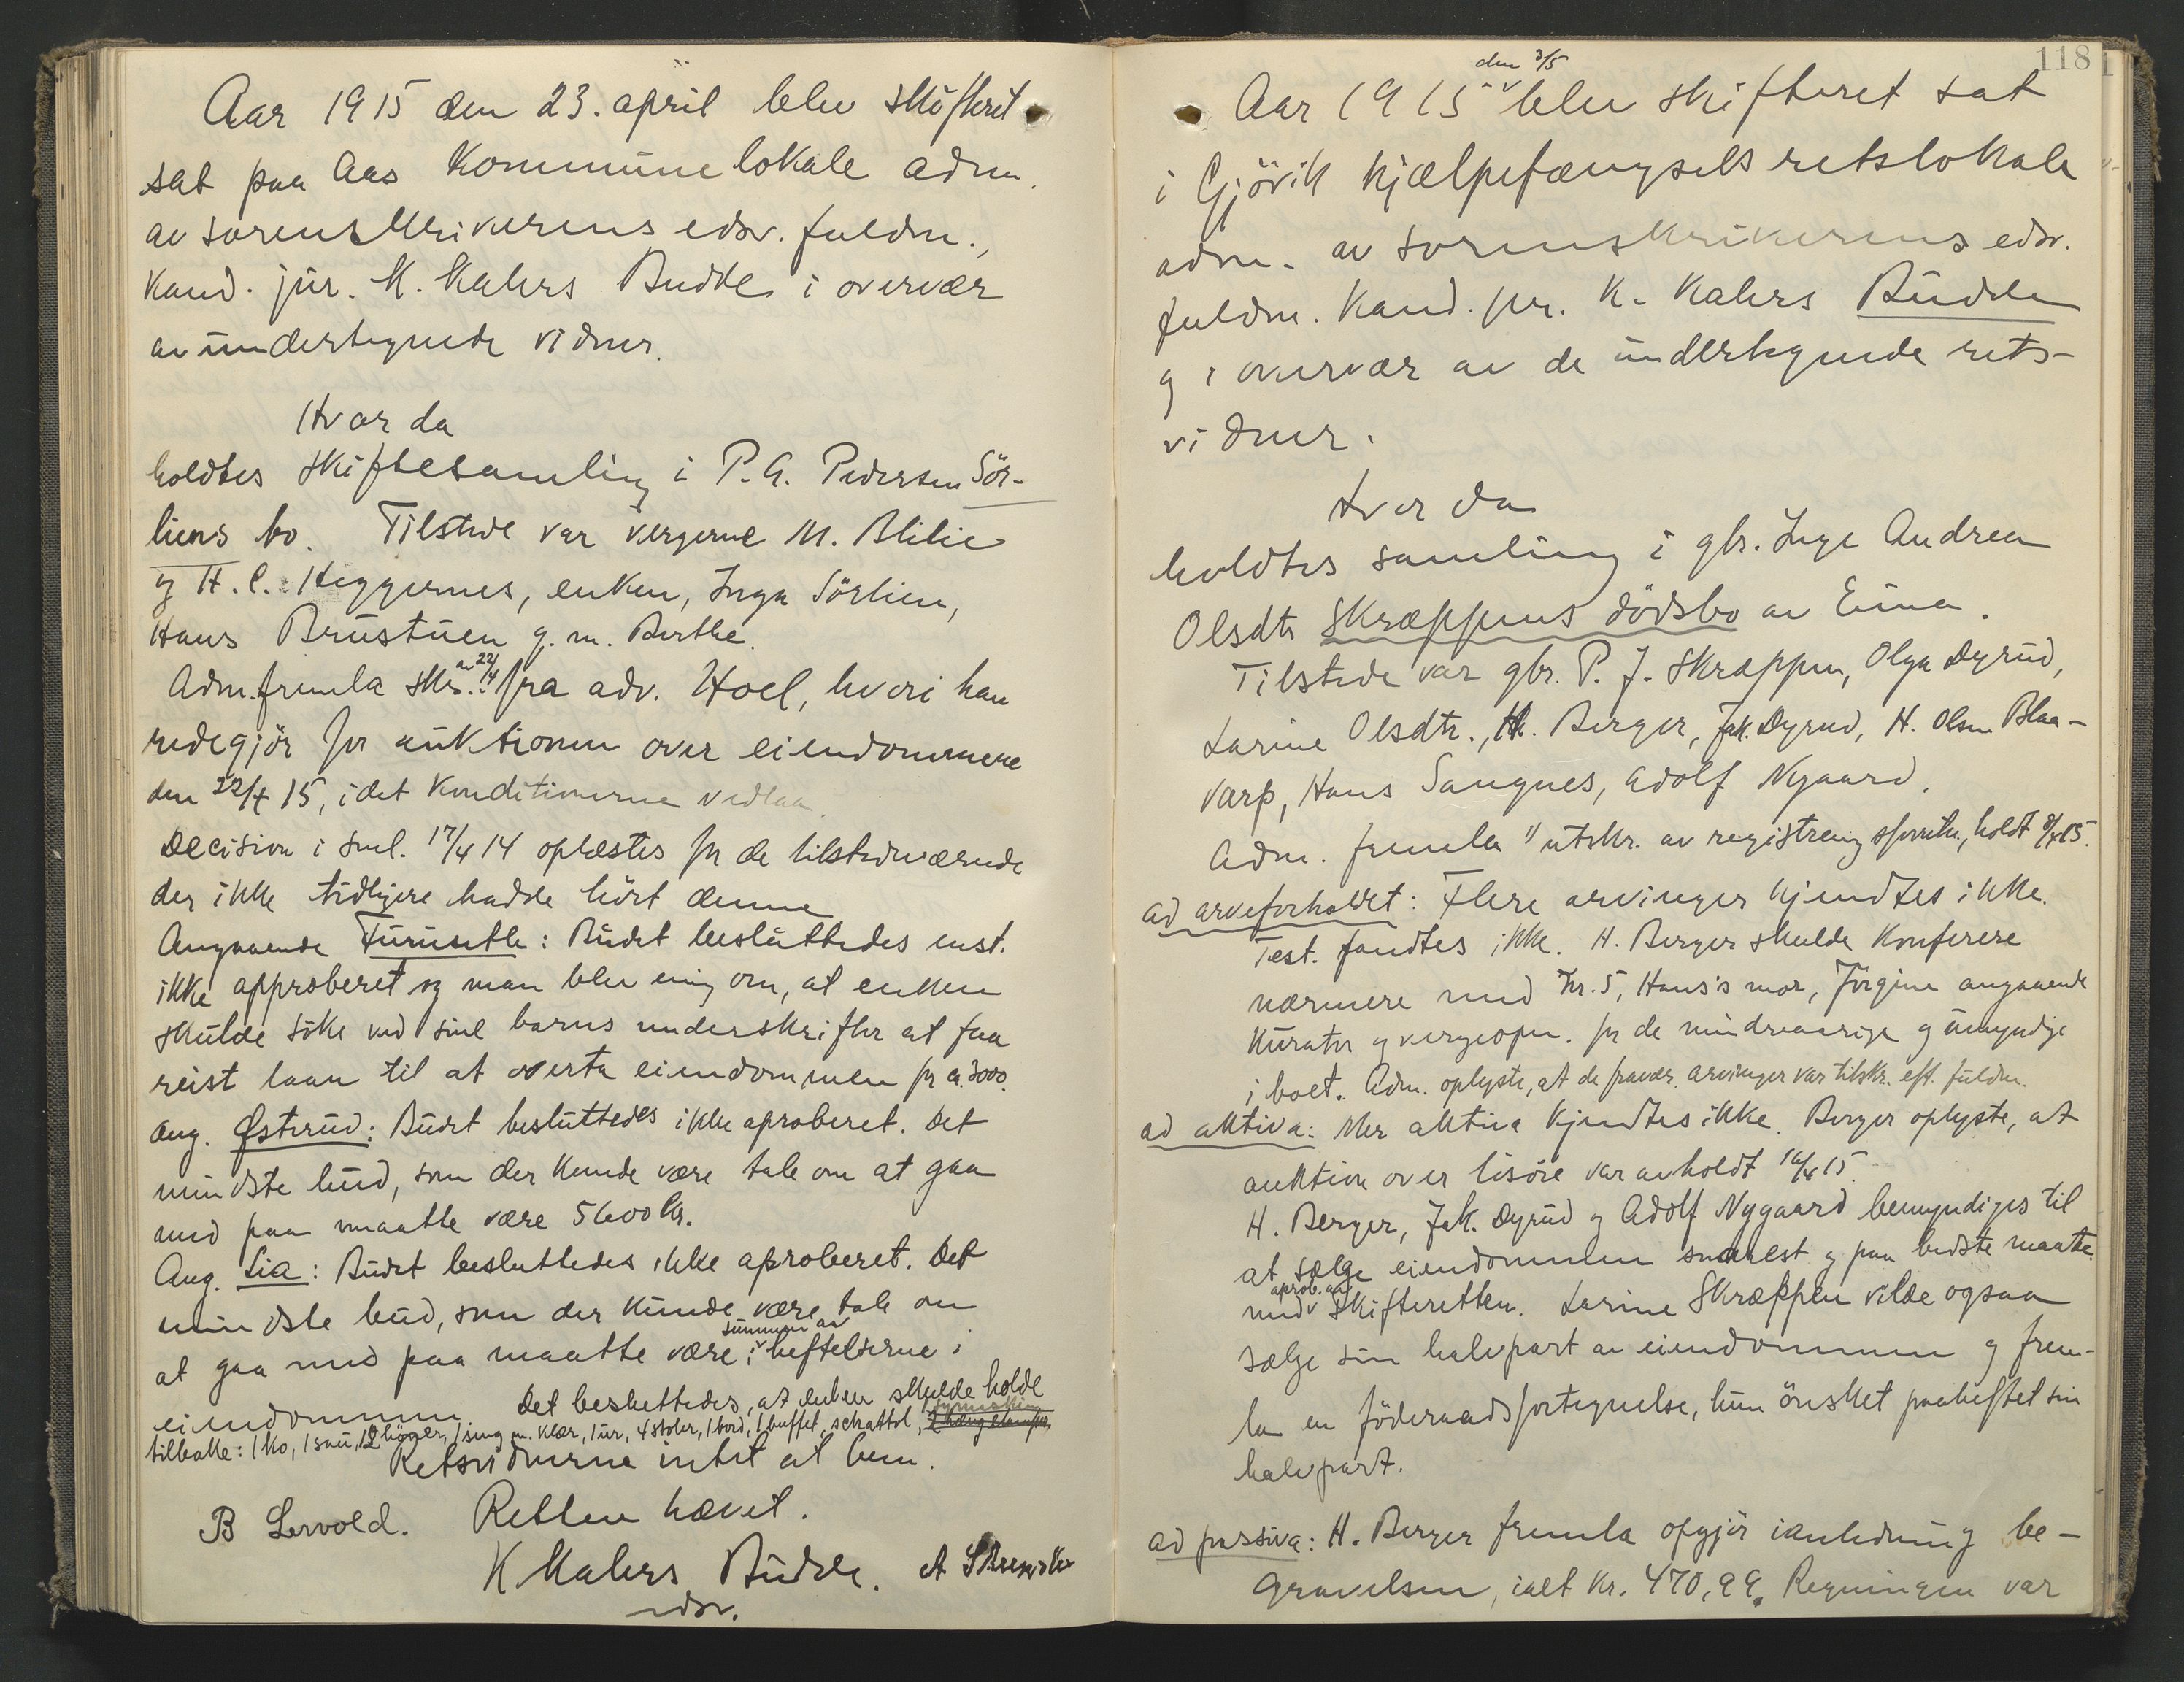 Aar 1915 den 23. april blev skifteret
sat paa Aas Kommunelokale adm.
av sorenskriverens edsv. fuldm.,
Kand. jur. K. Kahrs Budde i overvær
av undertegnede vidner.
Hvor da
holdtes skiftesamling i P. A. Pedersen Sör-
liens bo. Tilstede var vergerne M. Blilie
og H. C. Heggernes, enken, Inga Sörlien,
Hans Brustuen g. m. Berthe.
Adm. fremla skr. av 22/4 fra adv. Hoel, hvori han
redegjör for auktionen over eiendommene
den 22/4 15, idet Konditionerne vedlaa
Decision i saml. 17/4 14 oplæstes for de tilstedeværende
der ikke tidligere hadde hört denne
Angaaende Furusetle: Budet besluttedes enst.
ikke approberet og man blev enig om, at enken
skulde söke ved sine barns underskrifter at faa
reist laan til at overta eiendommen for ca. 3000.
Ang. Østerud: Budet besluttedes ikke aproberet. Det
mindste bud, som der kunde være tale om at gaa
med paa maatte være 5600 kr.
Ang. Lia: Budet besluttedes ikke aproberet. Det
mindste bud, som der kunde være tale om
at gaa med paa maatte være summen av heftelserne i
eiendommen. Det besluttedes, at enken skulde holde
tilbake: 1 ko, 1 sau, 12 höner, 1 seng m. klær, 1 ur, 4 stoler, 1 bord, 1 buffet, schattol, 1 symaskin
Retsvidnerne intet at bem.
Retten hævet.
B Lervold.
K Kahrs Budde.
edsv.
118
Aar 1915 den 3/5 blev skifteret sat
i Gjövik hjælpefængsels retslokale
adm. av sorenskriverens edsv.
fuldm. Kand. jur. K. Kahrs Budde
og i overvær av de undertegnede rets-
vidner.
Hvor da
holdtes samling i gbr. Inge Andrea
Olsdtr Skræppens dödsbo av Eina.
Tilstede var gbr. P. J. Skræppen, Olga Dyrud,
Larine Olsdtr., H. Berger, Jak. Dyrud, H. Olsen Blaa-
varp, Hans Sangnes, Adolf Nygaard.
Adm. fremla 1) utskr. av registreringsforretn., holdt 8/4 15.
ad arveforholdet: Flere arvinger kjendtes ikke.
Test. fandtes ikke. H. Berger skulde Konferere
nærmere med Nr. 5, Hans's mor, Jörgine angaaende
Kurator og vergeopn. for de mindreaarige og umyndige
i boet. Adm. oplyste, at de fravær. arvinger var tilskr. eft. fuldm.
ad aktiva: Mer aktiva kjendtes ikke. Berger oplyste, at
auktion over lösöre var avholdt 16/4 15.
H. Berger, Jak. Dyrud og Adolf Nygaard bemyndiges til
at sælge eiendommen snarest og paa bedste maate
med aprob. av skifteretten. Larine Skræppen vilde ogsaa
sælge sin halvpart av eiendommen og frem-
la en föderaadsfortegnelse, hun önsket paaheftet sin
halvpart.
ad passiva: H. Berger fremla opgjör i anledning be-
gravelsen, ialt Kr. 470,99. Regningen var